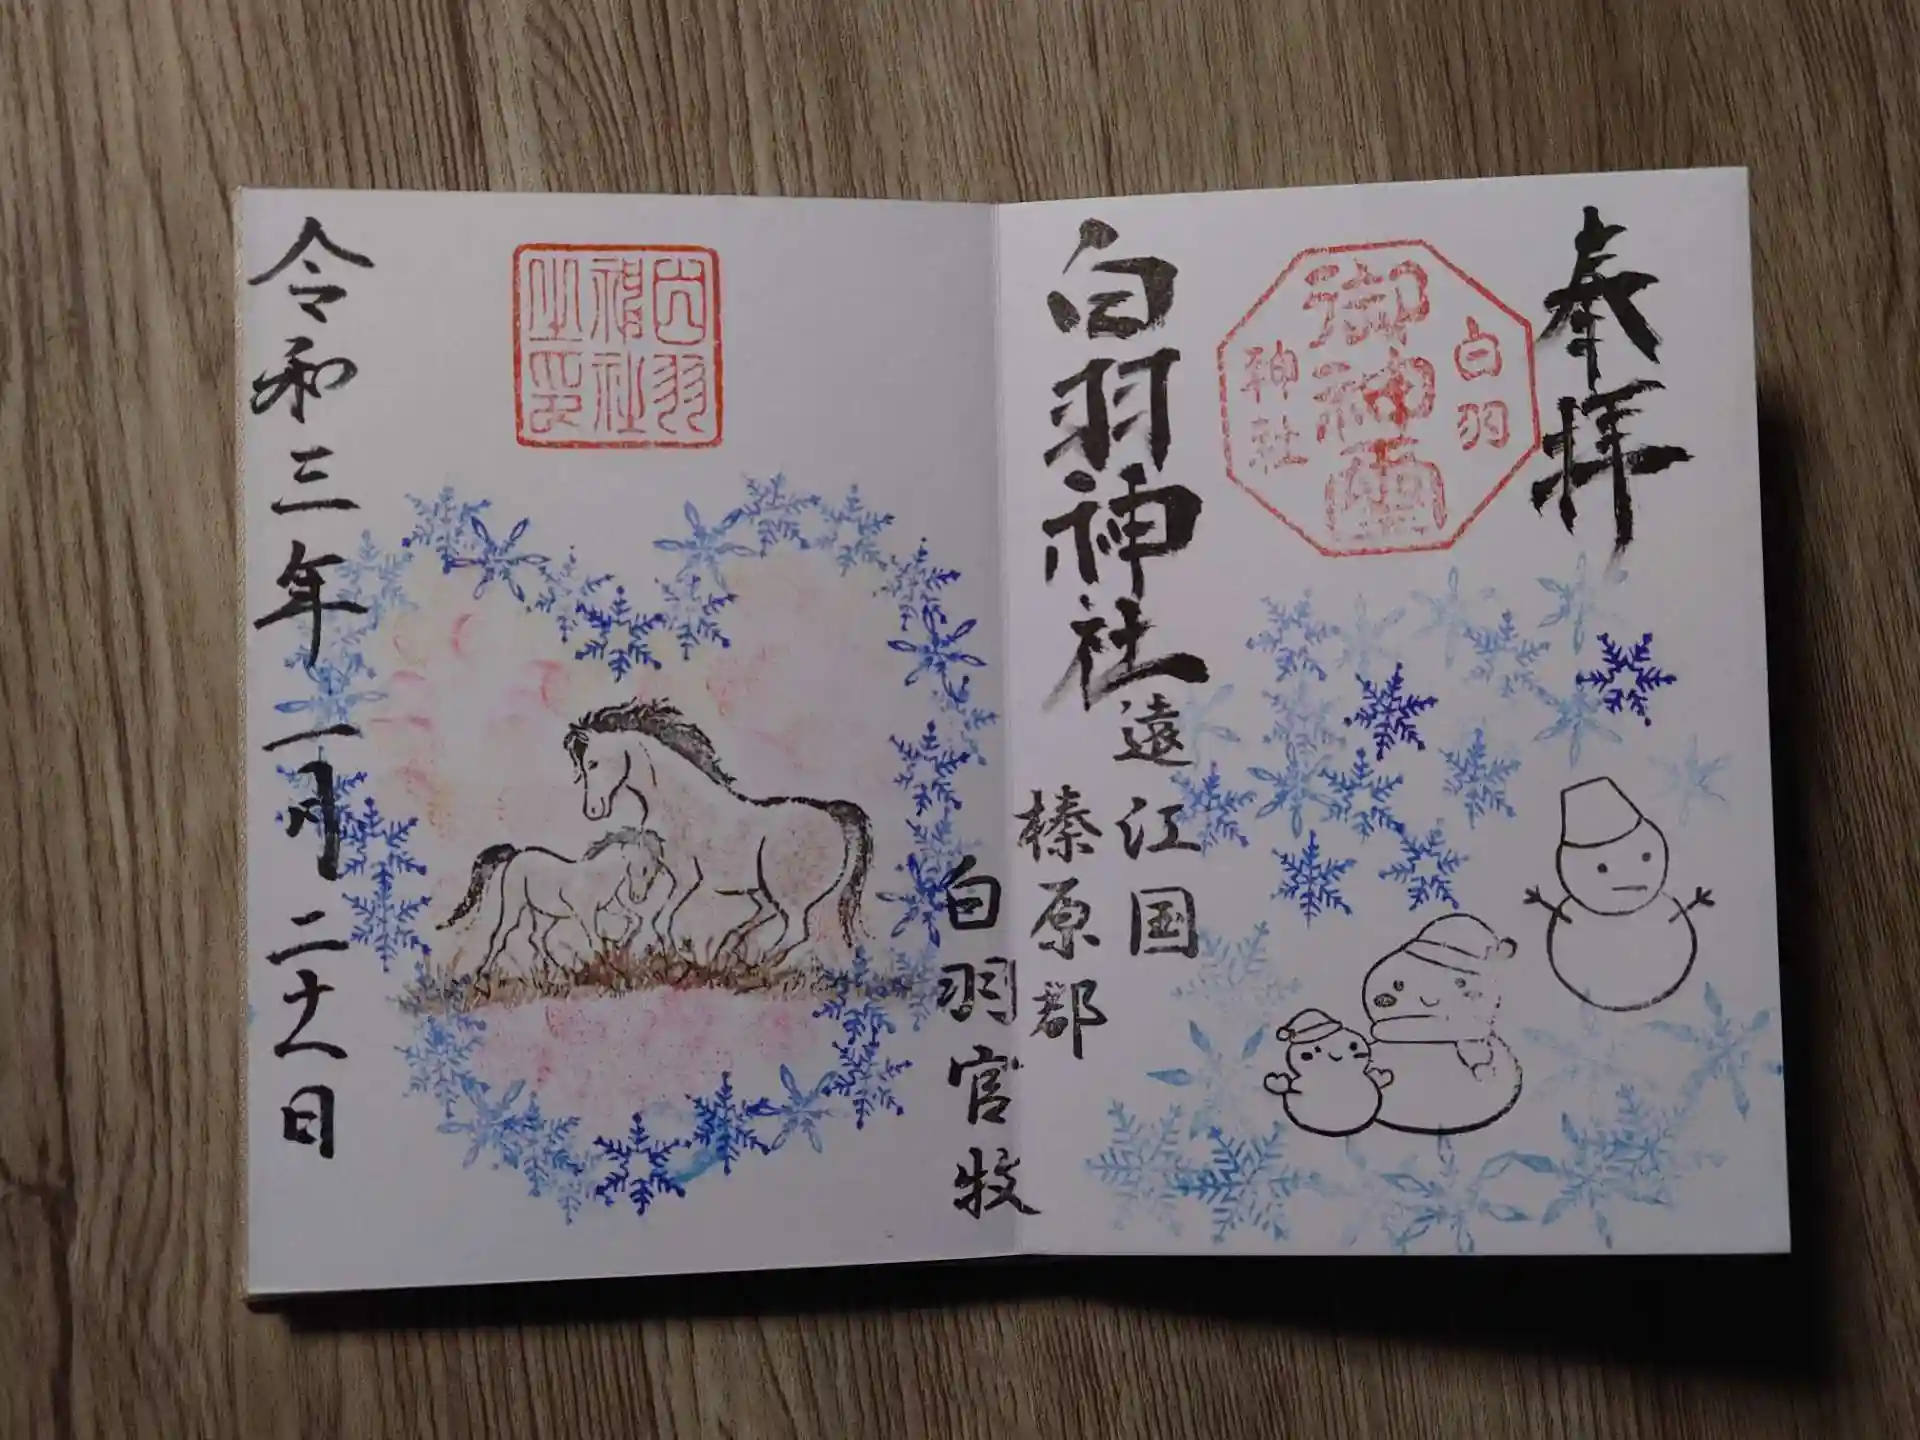 奉拝
白羽
御神
神社
白羽神社
遠江国
榛原郡
白羽官牧
白羽
神社
之印
令和三年一月二十八日